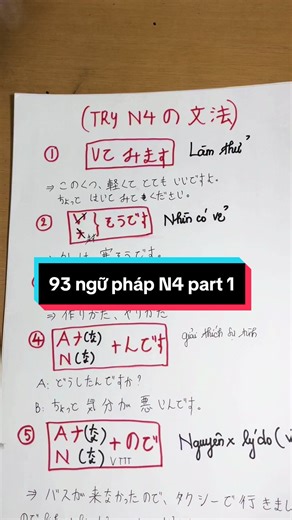 (TRY N4 の 文法)
① Vて みます Làm thử
⇒ このくつ、軽くて とても いいですよ。
ちょっと はいて みて ください。
② そうです Nhìn có vẻ
93 ngữ pháp N4 part 1
⇒ 作りかた、やりかた
④ Aナ(な) N(な) +んです giải thích sự tình
A: どうしたんですか?
B: ちょっと 気分が 悪いんです。
⑤ Aナ(な) N(な) +ので Nguyên x lý do
⇒ バスが 来なかったので、タクシーで 行きまし